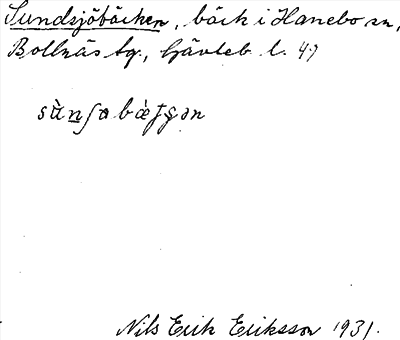 Sundsjöbäcken, bäck i Hanebo sn,
Bollnäs tg., Gävleb l. 47
sùnʃabæ̀ʈʂən
Nils Erik Eriksson 1931.